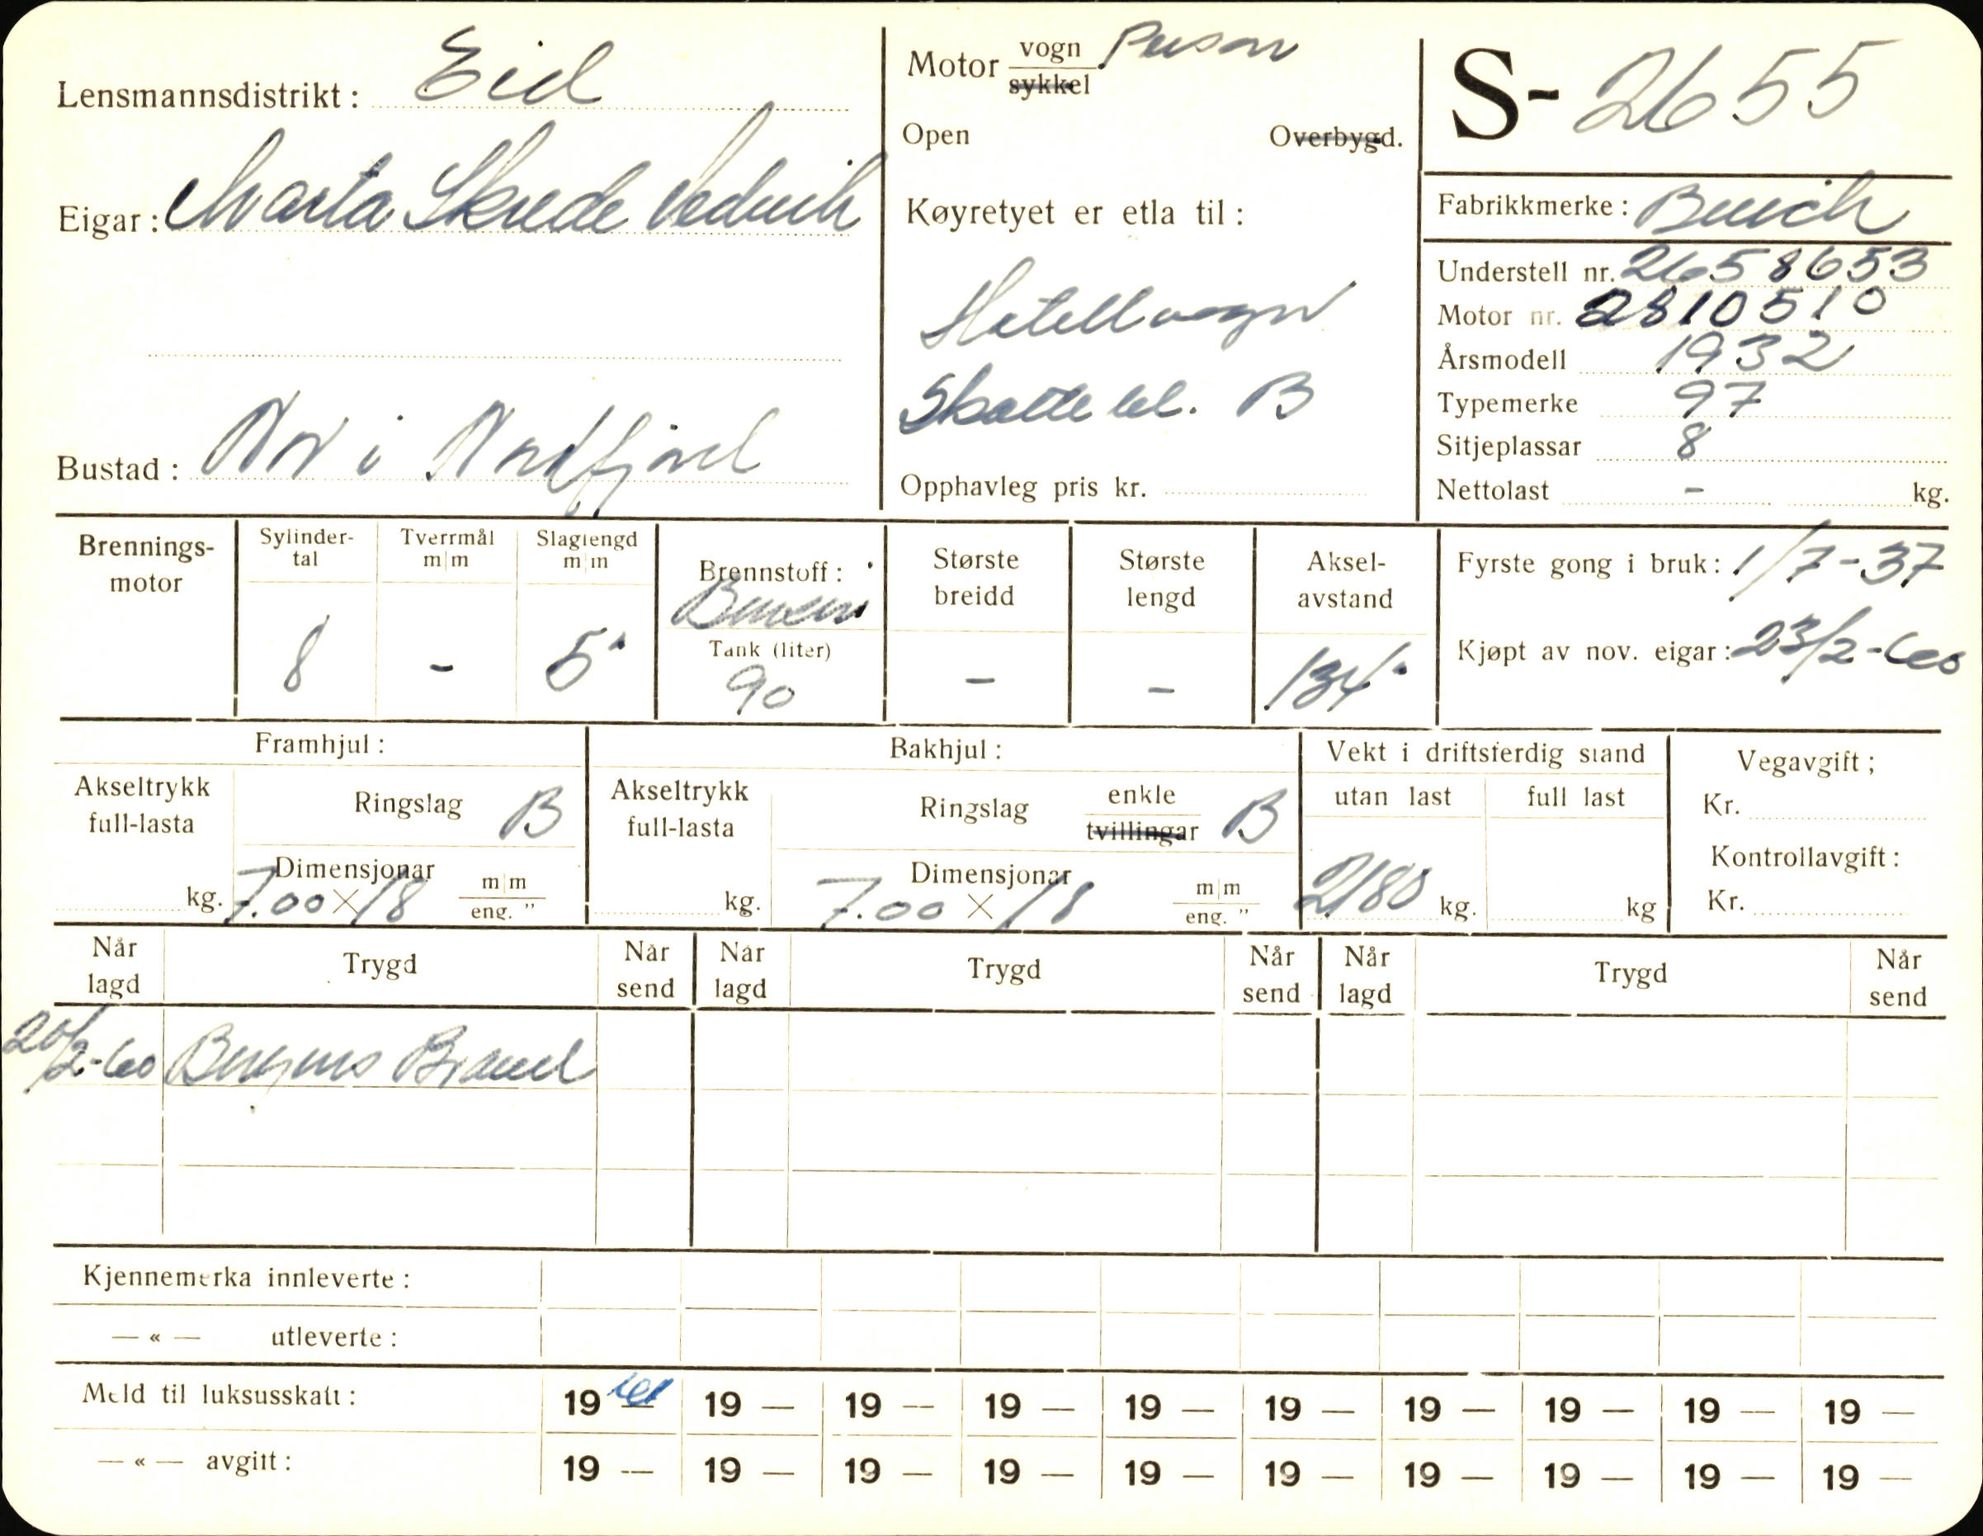 Lensmannsdistrikt: Eid
Eigar: Marta Skrede
Bustad: Nor i Nordfjord
Motor vogn Person
sykkel
Open Overbygd.
Køyretyet er etla til:
Hotellvogn
Skattekl. B
Opphavleg pris kr.
S-2655
Fabrikkmerke: Buick
Understell nr. 2658653
Motor nr. 2810510
Årsmodell 1932
Typemerke 97
Sitjeplassar 8
Nettolast - kg.
Brennings-
motor
Sylinder-
tal
8
Tverrmål
m|m
-
Slaglengd
m|m
5"
Brennstoff:
Bensin
Tank (liter)
90
Største
breidd
-
Største
lengd
-
Aksel-
avstand
134"
Fyrste gong i bruk: 1/7-37
Kjøpt av nov. eigar: 23/2-60
Framhjul:
Akseltrykk
full-lasta
kg.
Ringslag B
Dimensjonar
7.00 x 18 m|m
eng. "
Bakhjul:
Akseltrykk
full-lasta
kg.
Ringslag enkle B
tvillingar
Dimensjonar
7.00 x 18 m|m
eng. "
Vekt i driftsferdig stand
utan last full last
2180 kg. kg
Vegavgift;
Kr.
Kontrollavgift:
Kr.
Når
lagd Trygd Når
send Når
lagd Trygd Når
send Når
lagd Trygd Når
send
20/2-60 Bergens Brand
Kjennemerka innleverte:
— « — utleverte:
Meld til luksusskatt: 19 61 19 — 19 — 19 — 19 — 19 — 19 — 19 — 19 — 19 —
— « — avgift: 19 — 19 — 19 — 19 — 19 — 19 — 19 — 19 — 19 — 19 —